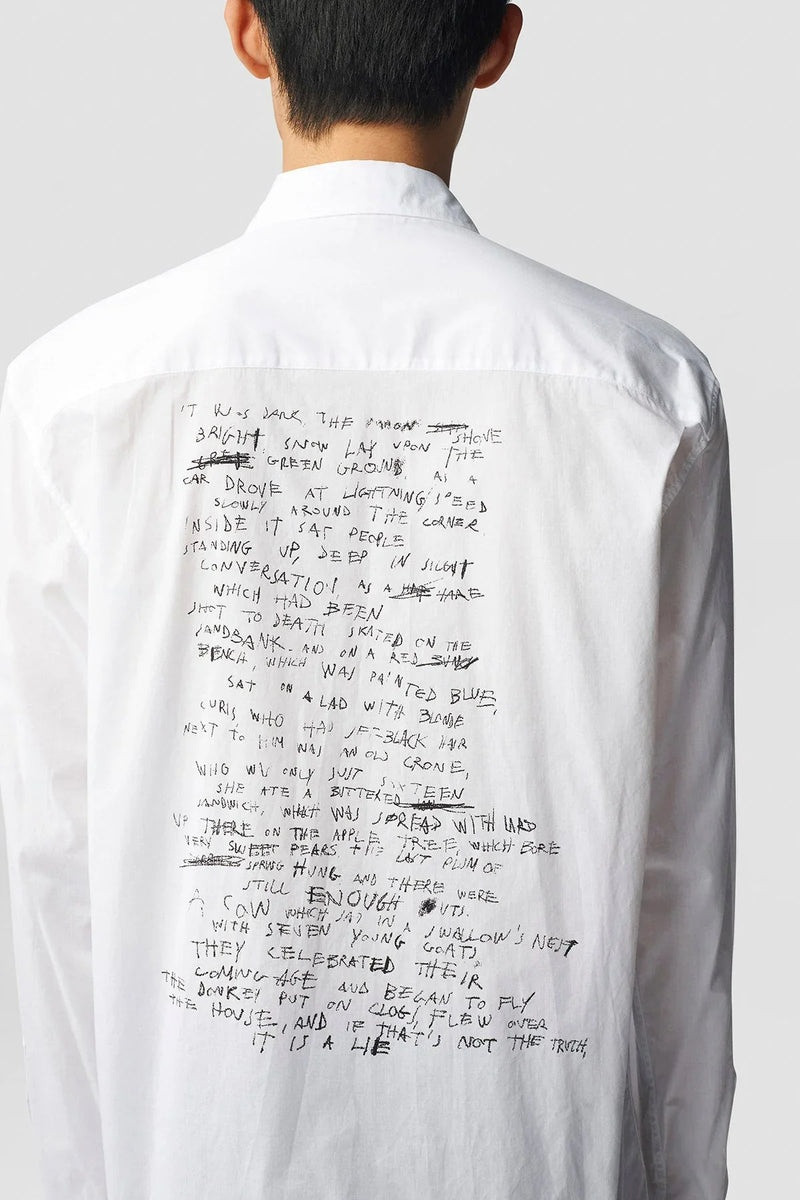 IT WAS DARK, THE MOON SHOVE
BRIGHT SNOW LAY UPON THE
GREEN GROUND, AS A
CAR DROVE AT LIGHTNING SPEED
SLOWLY AROUND THE CORNER
INSIDE IT SAT PEOPLE
STANDING UP, DEEP IN SILENT
CONVERSATION, AS A HARE
WHICH HAD BEEN
SHOT TO DEATH SKATED ON THE
SANDBANK. AND ON A RED
BENCH, WHICH WAS PAINTED BLUE,
SAT ON A LAD WITH BLONDE
CURLS, WHO HAD JET-BLACK HAIR
NEXT TO HIM WAS AN OLD CRONE,
WHO WAS ONLY JUST SIXTEEN
SHE ATE A BUTTERED
SANDWICH, WHICH WAS SPREAD WITH LARD
UP THERE ON THE APPLE TREE, WHICH BORE
VERY SWEET PEARS THE LAST PLUM OF
SPRING HUNG AND THERE WERE
STILL ENOUGH UTS.
A COW WHICH SAT IN A SWALLOW'S NEST
WITH SEVEN YOUNG GOATS
THEY CELEBRATED THEIR
COMING AGE AND BEGAN TO FLY
THE DONKEY PUT ON CLOGS, FLEW OVER
THE HOUSE, AND IF THAT'S NOT THE TRUTH,
IT IS A LIE